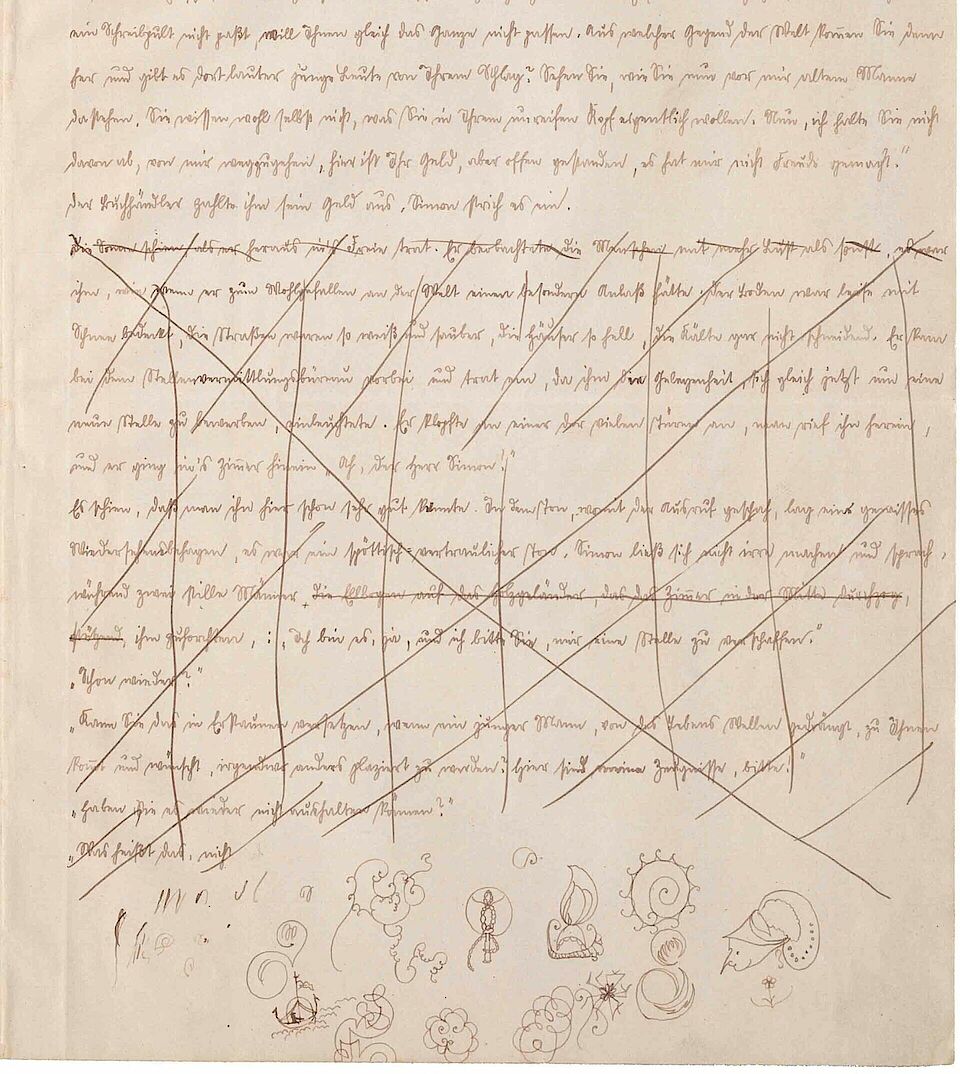 ein Schreibpult nicht paßt, will Ihnen gleich das Ganze nicht passen. Aus welcher Gegend der Welt kommen Sie denn
her und gibt es dort lauter junge Leute von Ihrem Schlag? Sehen Sie, wie Sie nun vor mir altem Manne
dastehen. Sie wissen wohl selbst nicht, was Sie in Ihrem unreifen Kopf eigentlich wollen. Nun, ich halte Sie nicht
davon ab, von mir wegzugehen, hier ist Ihr Geld, aber offen gestanden, es hat mir nicht Freude gemacht."
Der Buchhändler zahlte ihm sein Geld aus, Simon strich es ein.
Die Sonne schien, als er heraus ins Freie trat. Er beobachtete die Menschen mit mehr Lust als sonst, es war
ihm, wie wenn er zum Wohlgefallen an der Welt einen besondern Anlaß hätte. Der Boden war leise mit
Schnee bedeckt, die Straßen waren so weiß und sauber, die Häuser so hell, die Kälte gar nicht schneidend. Er kam
bei dem Stellenvermittlungsbüreau vorbei und trat ein, da ihm die Gelegenheit, sich gleich jetzt um eine
neue Stelle zu bewerben, einleuchtete. Er klopfte an einer der vielen Türen an, man rief ihn herein,
und er ging in's Zimmer hinein. „Ah, der Herr Simon!"
Es schien, daß man ihn hier schon sehr gut kannte. In dem Ton, womit der Ausruf geschah, lag eine gewisses
Wiedersehensbehagen, es war ein spöttisch-vertraulicher Ton. Simon ließ sich nicht irre machen und sprach,
während zwei stille Männer, die Ellbogen auf das Holzgeländer, das das Zimmer in der Mitte durchzog,
stützend, ihm zuhorchten, : „Ich bin es, ja, und ich bitte Sie, mir eine Stelle zu verschaffen."
„Schon wieder?"
„Kann Sie das in Erstaunen versetzen, wenn ein junger Mann, von des Lebens Wellen gedrängt, zu Ihnen
kommt und wünscht, irgendwo anders plaziert zu werden? Hier sind meine Zeugnisse, bitte."
„Haben Sie es wieder nicht aushalten können?"
„Was heißt das, nicht